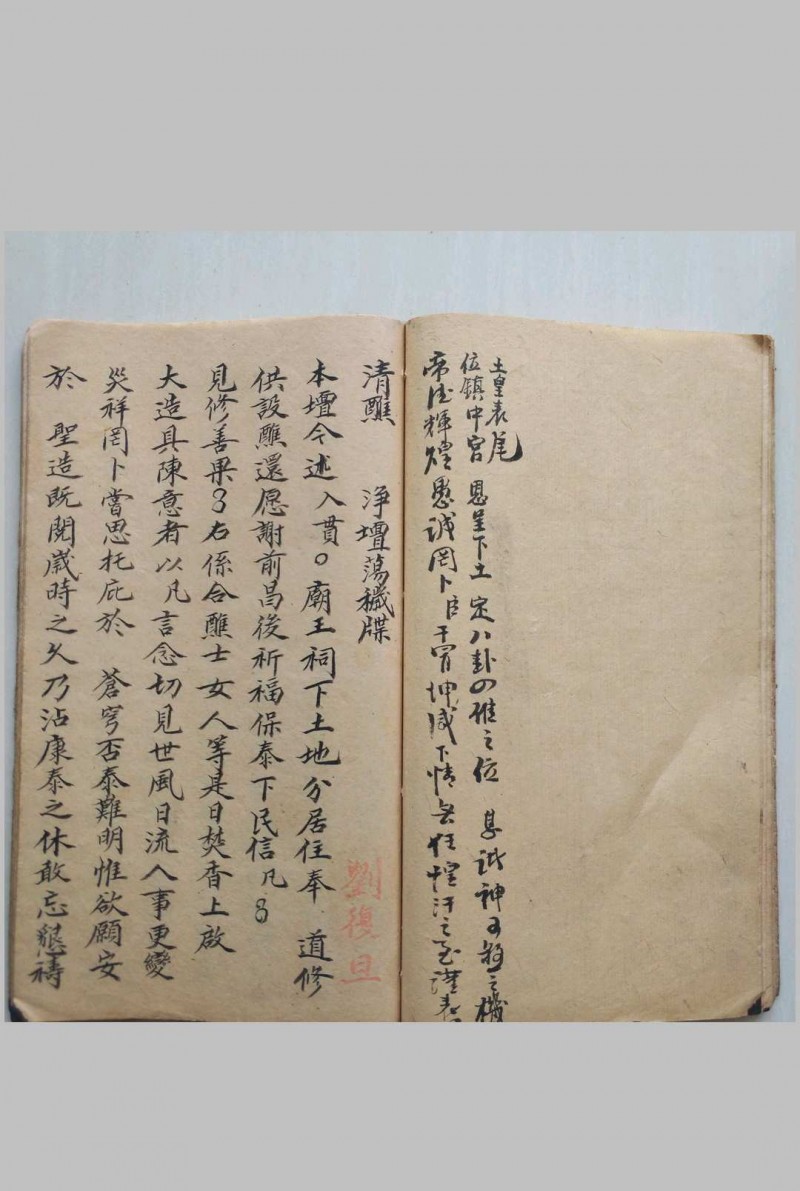 土皇表尾
位鎮中宮 恩呈下土 定八卦四維之位
帝德輝煌 愚誠罔卜 臣干冒坤威 下情無任惶汗之至 謹表
清醮 淨壇蕩穢牒
本壇今述入貫○廟王祠下土地分居住奉 道修
供設醮還愿謝前昌後祈福保泰下民信凡
見修善果 右係合醮士女人等是日焚香上啟
大造具陳意者以凡言念切見世風日流人事更變
災祥罔卜嘗思托庇於 蒼穹否泰難明惟欲願安
於 聖造既閱歲時之久乃沾康泰之休敢忘懇禱
劉復旦